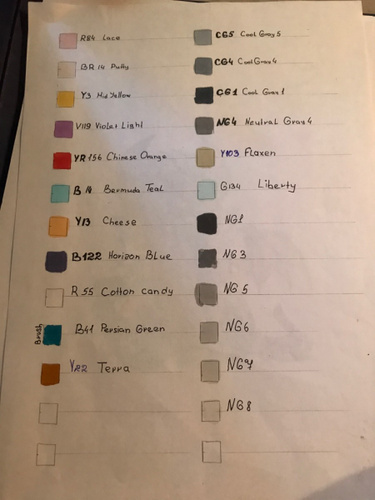 R84 Lace
BR14 Putty
Y3 Mid Yellow
V119 Violet Light
YR156 Chinese Orange
B14 Bermuda Teal
Y13 Cheese
B122 Horizon Blue
R55 Cotton candy
Brush B41 Persian Green
YR2 Terra
CG5 Cool Gray 5
CG4 Cool Gray 4
CG1 Cool Gray 1
NG4 Neutral Gray 4
Y103 Flaxen
G134 Liberty
NG1
NG3
NG5
NG6
NG7
NG8